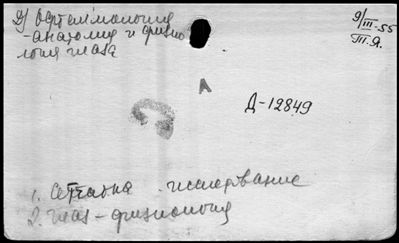 2) Офталмология
- анатомия и физио
логия глаза
9/III-55
П.Я.
А
Д-12849
1. Сетчатка - исследование
2. Глаз - физиология